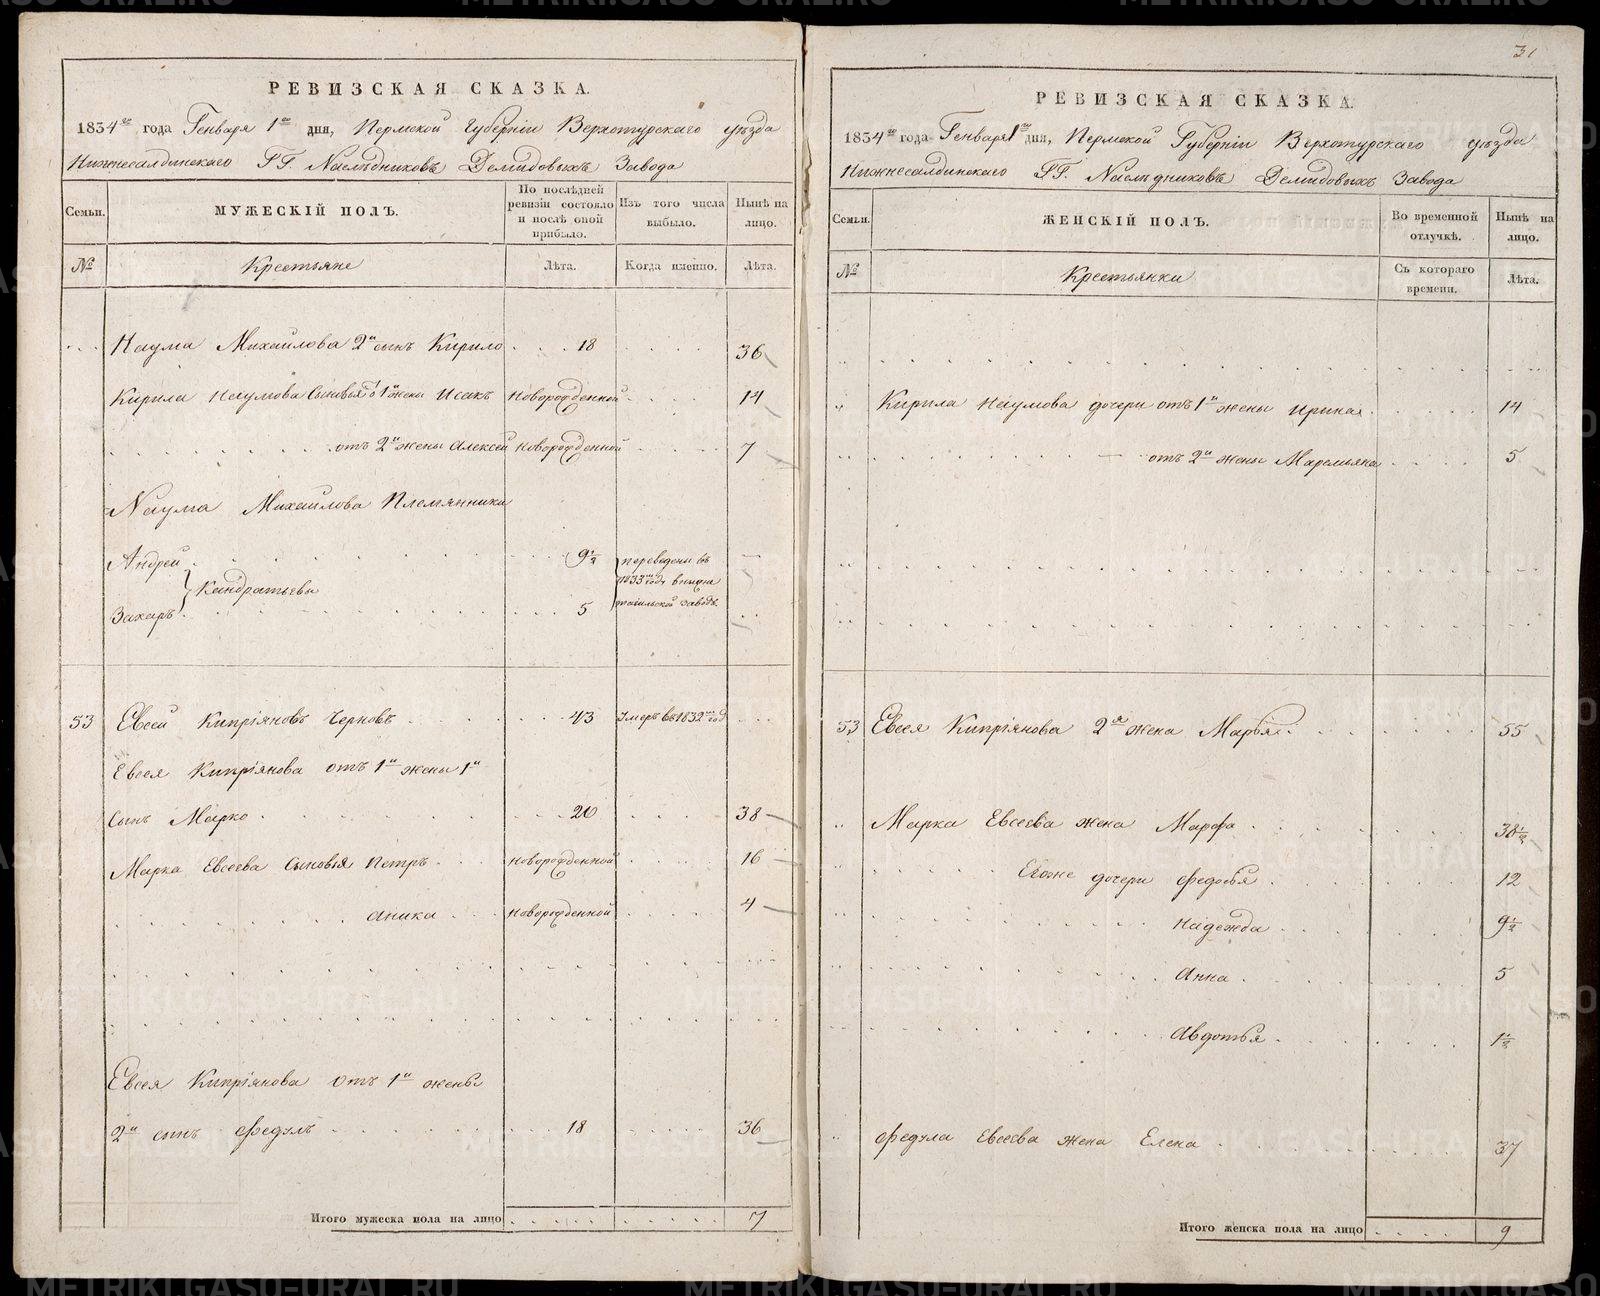 РЕВИЗСКАЯ СКАЗКА.
1834го года Генваря 1го дня, Пермской Губернiи Верхотурскаго уѣзда
Нижнесалдинскаго ГГ. Наслѣдниковъ Демидовыхъ Завода
Семьи. МУЖЕСКIЙ ПОЛЪ. По послѣдней ревизiи состояло и послѣ оной прибыло. Изъ того числа выбыло. Нынѣ на лицо.
№ Крестьяне Лѣта. Когда именно. Лѣта.
Наума Михайлова 2й сынъ Кирило 18 36
Кирила Наумова Сыновья от 1й жены Исакъ Новорожденной 14
отъ 2й жены Алексей Новорожденной 7
Наума Михайлова Племянники
Андрей 9½ переведены въ
Кондратьевы 1833м году в нижне
Захаръ 5 тагильской заводъ
53 Евсей Кипрiяновъ Черновъ 43 Умеръ въ 1832м год
Евсея Кипрiянова отъ 1й жены 1й
сынъ Марко 20 38
Марка Евсеева Сыновья Петръ Новорожденной 16
Аника Новорожденной 4
Евсея Кипрiянова отъ 1й жены
2й сынъ Федулъ 18 36
Итого мужеска пола на лицо 7
31
РЕВИЗСКАЯ СКАЗКА.
1834го года Генваря 1го дня, Пермской Губернiи Верхотурскаго уѣзда
Нижнесалдинскаго ГГ. Наслѣдниковъ Демидовыхъ Завода
Семьи. ЖЕНСКIЙ ПОЛЪ. Во временной отлучкѣ. Нынѣ на лицо.
№ Крестьянки Съ котораго времени. Лѣта.
Кирила Наумова дочери отъ 1й жены Ирина 14
отъ 2й жены Маремьяна 5
53 Евсея Кипрiянова 2я жена Марья 55
Марка Евсеева жена Марфа 38½
Егоже дочери Федосья 12
Надежда 9½
Анна 5
Авдотья 1½
Федула Евсеева жена Елена 37
Итого женска пола на лицо 9
METRIKI.GASO-URAL.RU